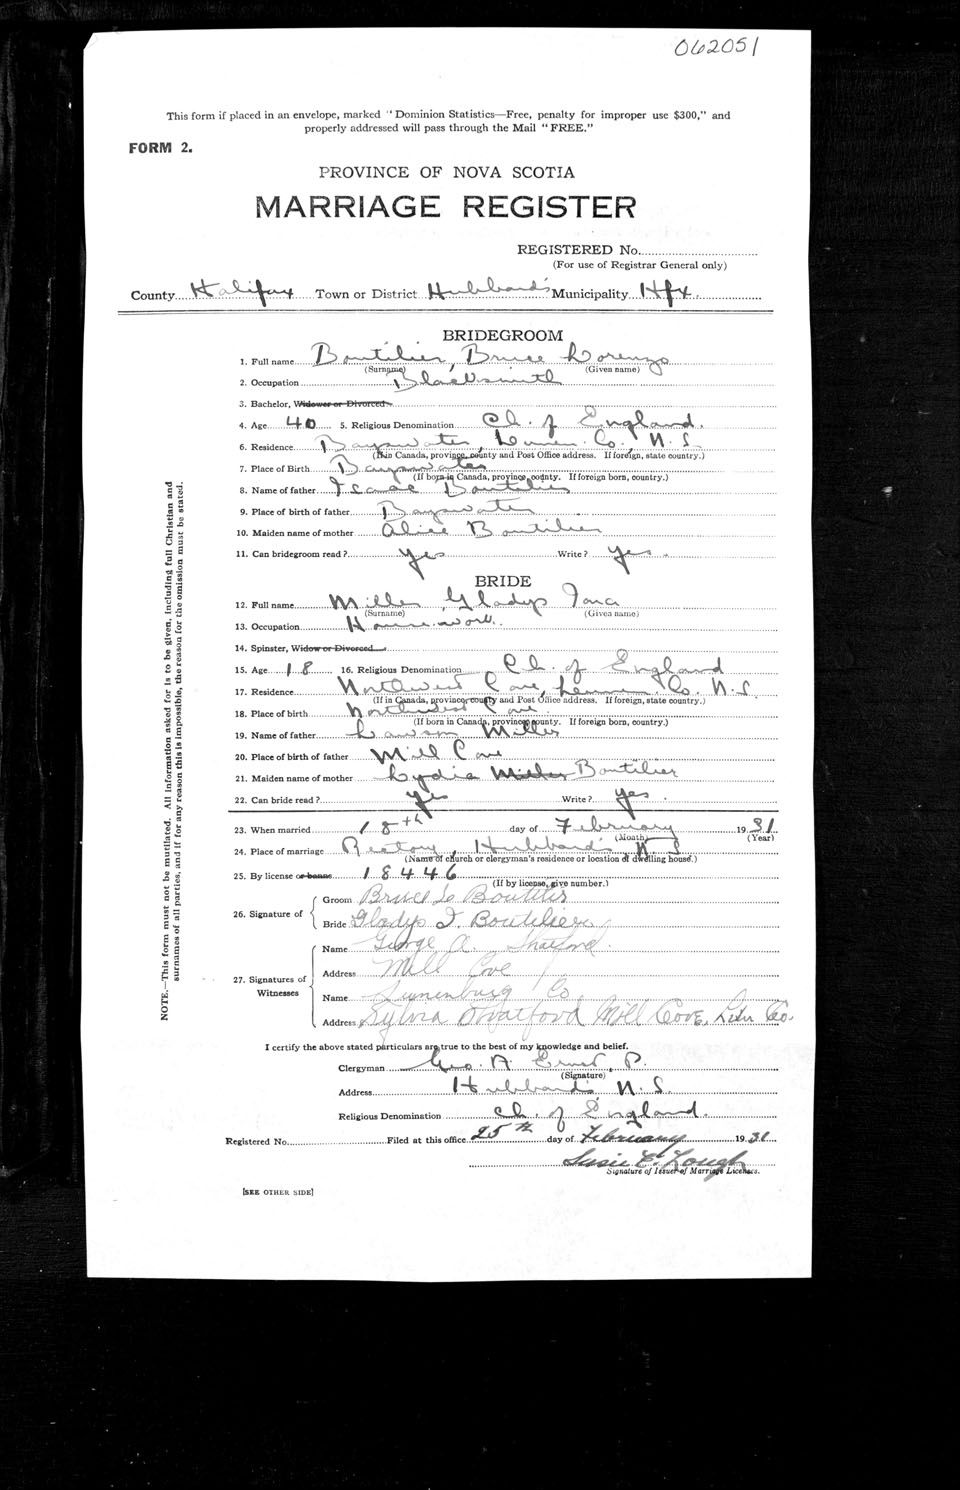 062051
This form if placed in an envelope, marked "Dominion Statistics—Free, penalty for improper use $300," and
properly addressed will pass through the Mail "FREE."
FORM 2.
PROVINCE OF NOVA SCOTIA
MARRIAGE REGISTER
REGISTERED No.
(For use of Registrar General only)
County Halifax Town or District Hubbards Municipality Hfx.
BRIDEGROOM
1. Full name Boutilier, Bruce Lorenzo
(Surname) (Given name)
2. Occupation Blacksmith
3. Bachelor, Widower or Divorced
4. Age 40 5. Religious Denomination Ch. of England
6. Residence Bayswater, Lunen. Co., N.S.
(If in Canada, province, county and Post Office address. If foreign, state country.)
7. Place of Birth Bayswater
(If born in Canada, province, county. If foreign born, country.)
8. Name of father Isaac Boutilier
9. Place of birth of father Bayswater
10. Maiden name of mother Alice Boutilier
11. Can bridegroom read? Yes Write? Yes
BRIDE
12. Full name Miller Gladys Iona
(Surname) (Given name)
13. Occupation Housework
14. Spinster, Widow or Divorced
15. Age 18 16. Religious Denomination Ch. of England
17. Residence Northwest Cove, Lunen. Co. N.S.
(If in Canada, province, county and Post Office address. If foreign, state country.)
18. Place of birth Northwest Cove
(If born in Canada, province, county. If foreign born, country.)
19. Name of father Lawson Miller
20. Place of birth of father Mill Cove
21. Maiden name of mother Lydia Miller Boutilier
22. Can bride read? Yes Write? Yes.
23. When married 18th day of February 1931
(Month) (Year)
24. Place of marriage Rectory, Hubbards N S
(Name of church or clergyman's residence or location of dwelling house.)
25. By license or banns 18446
(If by license, give number.)
26. Signature of
Groom Bruce L Boutilier
Bride Gladys I. Boutilier
27. Signatures of Witnesses
Name George A. Shatford.
Address Mill Cove
Name Lunenburg Co
Address Sylvia Shatford Mill Cove, Lun Co.
I certify the above stated particulars are true to the best of my knowledge and belief.
Clergyman Geo. A. Ernst, P.
(Signature)
Address Hubbards, N.S.
Religious Denomination Ch. of England.
Registered No. Filed at this office 25th day of February 1931
Susie E. Lough
Signature of Issuer of Marriage Licenses.
[SEE OTHER SIDE]
NOTE.—This form must not be mutilated. All information asked for is to be given, including full Christian and
surnames of all parties, and if for any reason this is impossible, the reason for the omission must be stated.